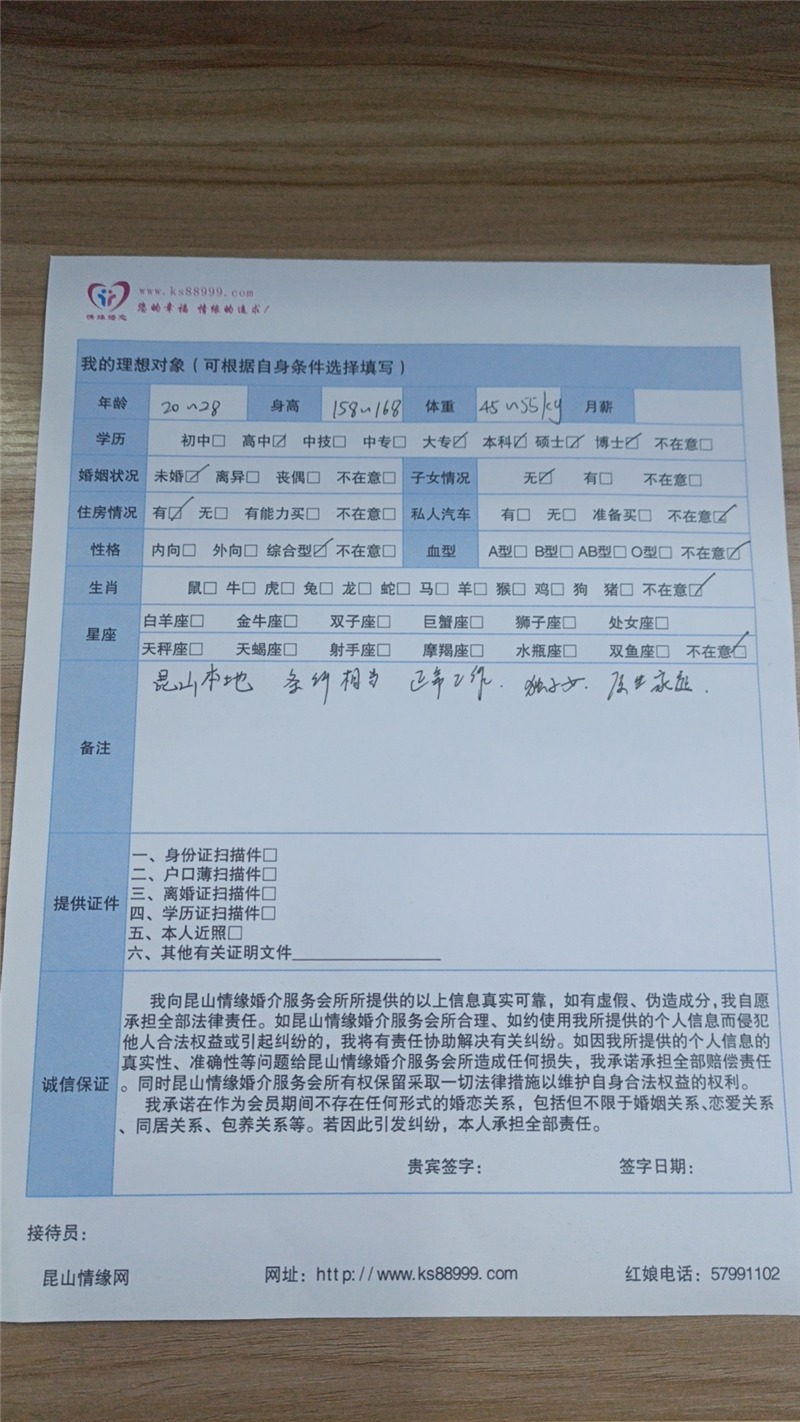 www.ks88999.com
您的幸福 情缘的追求！
情缘婚恋
我的理想对象（可根据自身条件选择填写）
年龄 20~28 身高 158~168 体重 45~55kg 月薪
学历 初中□ 高中☑ 中技□ 中专□ 大专☑ 本科☑ 硕士☑ 博士☑ 不在意□
婚姻状况 未婚☑ 离异□ 丧偶□ 不在意□ 子女情况 无☑ 有□ 不在意□
住房情况 有☑ 无□ 有能力买□ 不在意□ 私人汽车 有□ 无□ 准备买□ 不在意☑
性格 内向□ 外向□ 综合型☑ 不在意□ 血型 A型□ B型□ AB型□ O型□ 不在意☑
生肖 鼠□ 牛□ 虎□ 兔□ 龙□ 蛇□ 马□ 羊□ 猴□ 鸡□ 狗 猪□ 不在意☑
星座 白羊座□ 金牛座□ 双子座□ 巨蟹座□ 狮子座□ 处女座□
天秤座□ 天蝎座□ 射手座□ 摩羯座□ 水瓶座□ 双鱼座□ 不在意☑
昆山本地 条件相当 正常工作. 独子女. 原生家庭.
备注
提供证件
一、身份证扫描件□
二、户口薄扫描件□
三、离婚证扫描件□
四、学历证扫描件□
五、本人近照□
六、其他有关证明文件
诚信保证
我向昆山情缘婚介服务会所所提供的以上信息真实可靠，如有虚假、伪造成分，我自愿
承担全部法律责任。如昆山情缘婚介服务会所合理、如约使用我所提供的个人信息而侵犯
他人合法权益或引起纠纷的，我将有责任协助解决有关纠纷。如因我所提供的个人信息的
真实性、准确性等问题给昆山情缘婚介服务会所造成任何损失，我承诺承担全部赔偿责任
。同时昆山情缘婚介服务会所有权保留采取一切法律措施以维护自身合法权益的权利。
我承诺在作为会员期间不存在任何形式的婚恋关系，包括但不限于婚姻关系、恋爱关系
、同居关系、包养关系等。若因此引发纠纷，本人承担全部责任。
贵宾签字： 签字日期：
接待员：
昆山情缘网 网址：http://www.ks88999.com 红娘电话：57991102